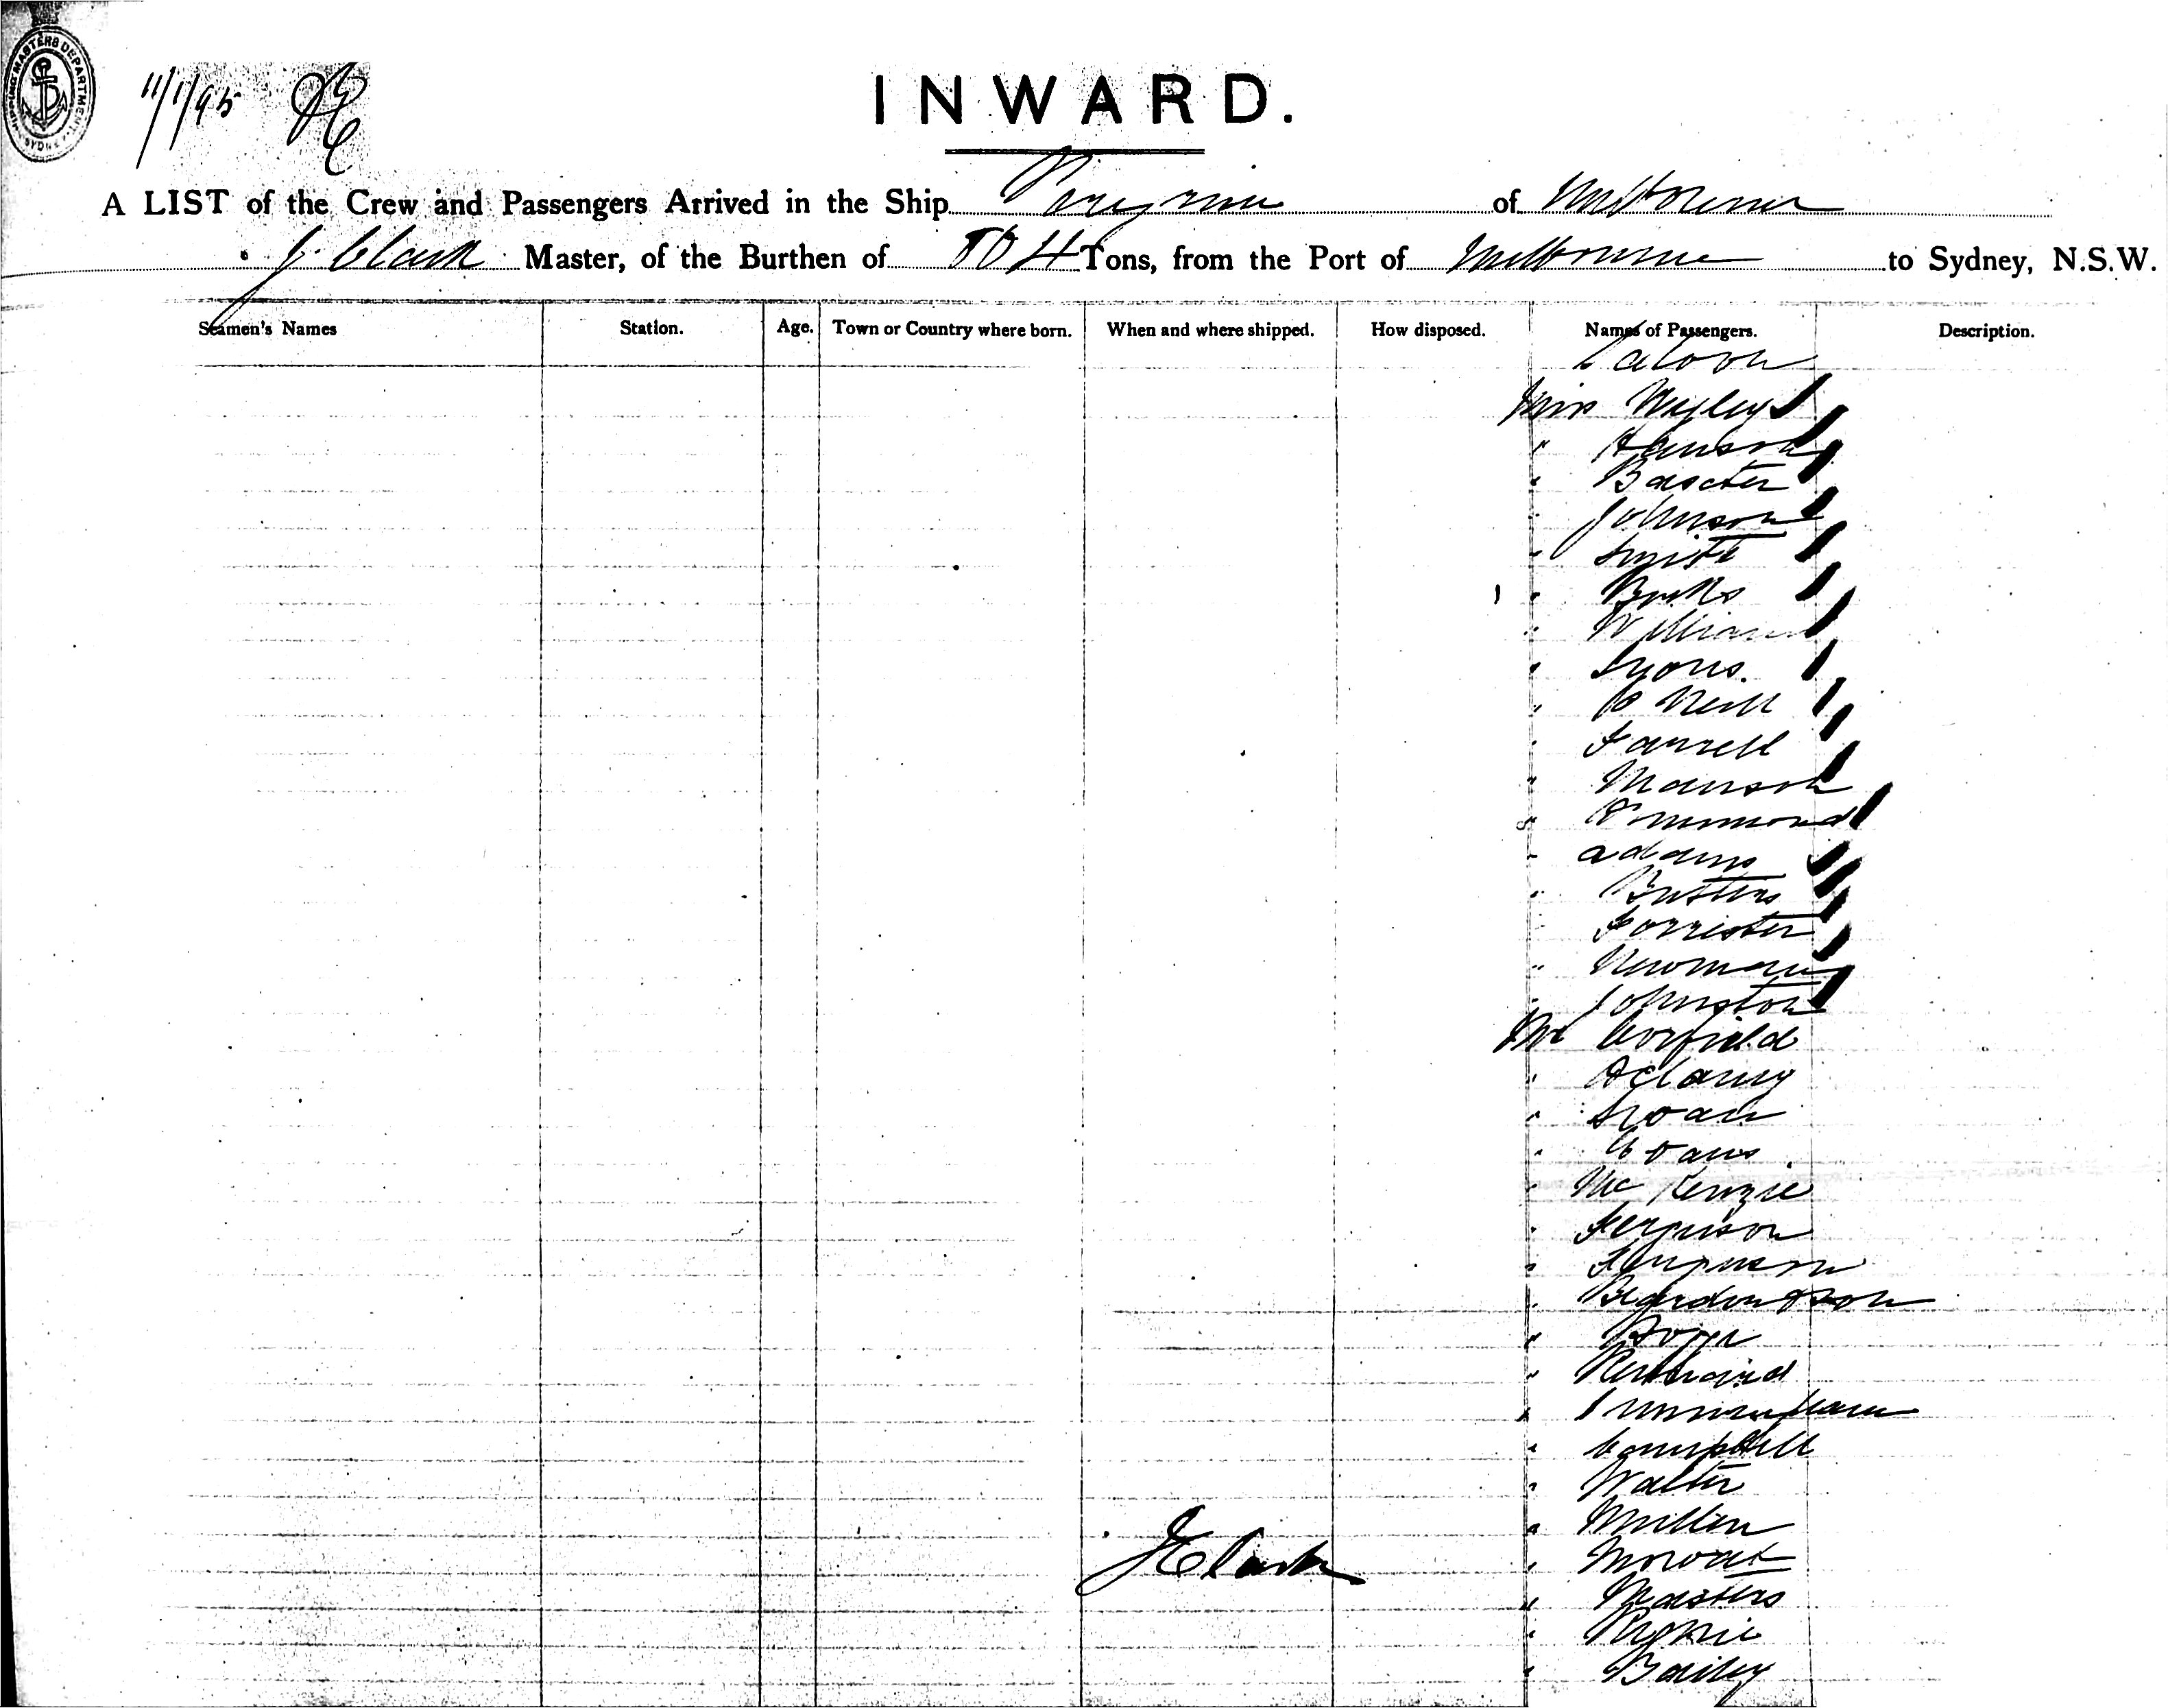 SHIPPING MASTERS DEPARTMENT SYDNEY
11/1/95
INWARD.
A LIST of the Crew and Passengers Arrived in the Ship of Melbourne
J. Clark Master, of the Burthen of Tons, from the Port of Melbourne to Sydney, N.S.W.
Seamen's Names Station. Age. Town or Country where born. When and where shipped. How disposed. Names of Passengers. Description.
Saloon
Miss Wigley
" Hanson
" Baxter
" Johnson
" Smith
" Banks
" Williams
" Lyons.
" O Neill
" Farrell
" Manson
" Ommond
" Adams
" Butters
" Forrester
" Newman
" Johnston
Mr Corfield
" Delany
" Sloan
" Evans
" McKenzie
" Ferguson
" Ferguson
"
"
"
"
" Campbell
" Walter
" Mullen
" Mowat
" Masters
"
" Bailey
J Clark